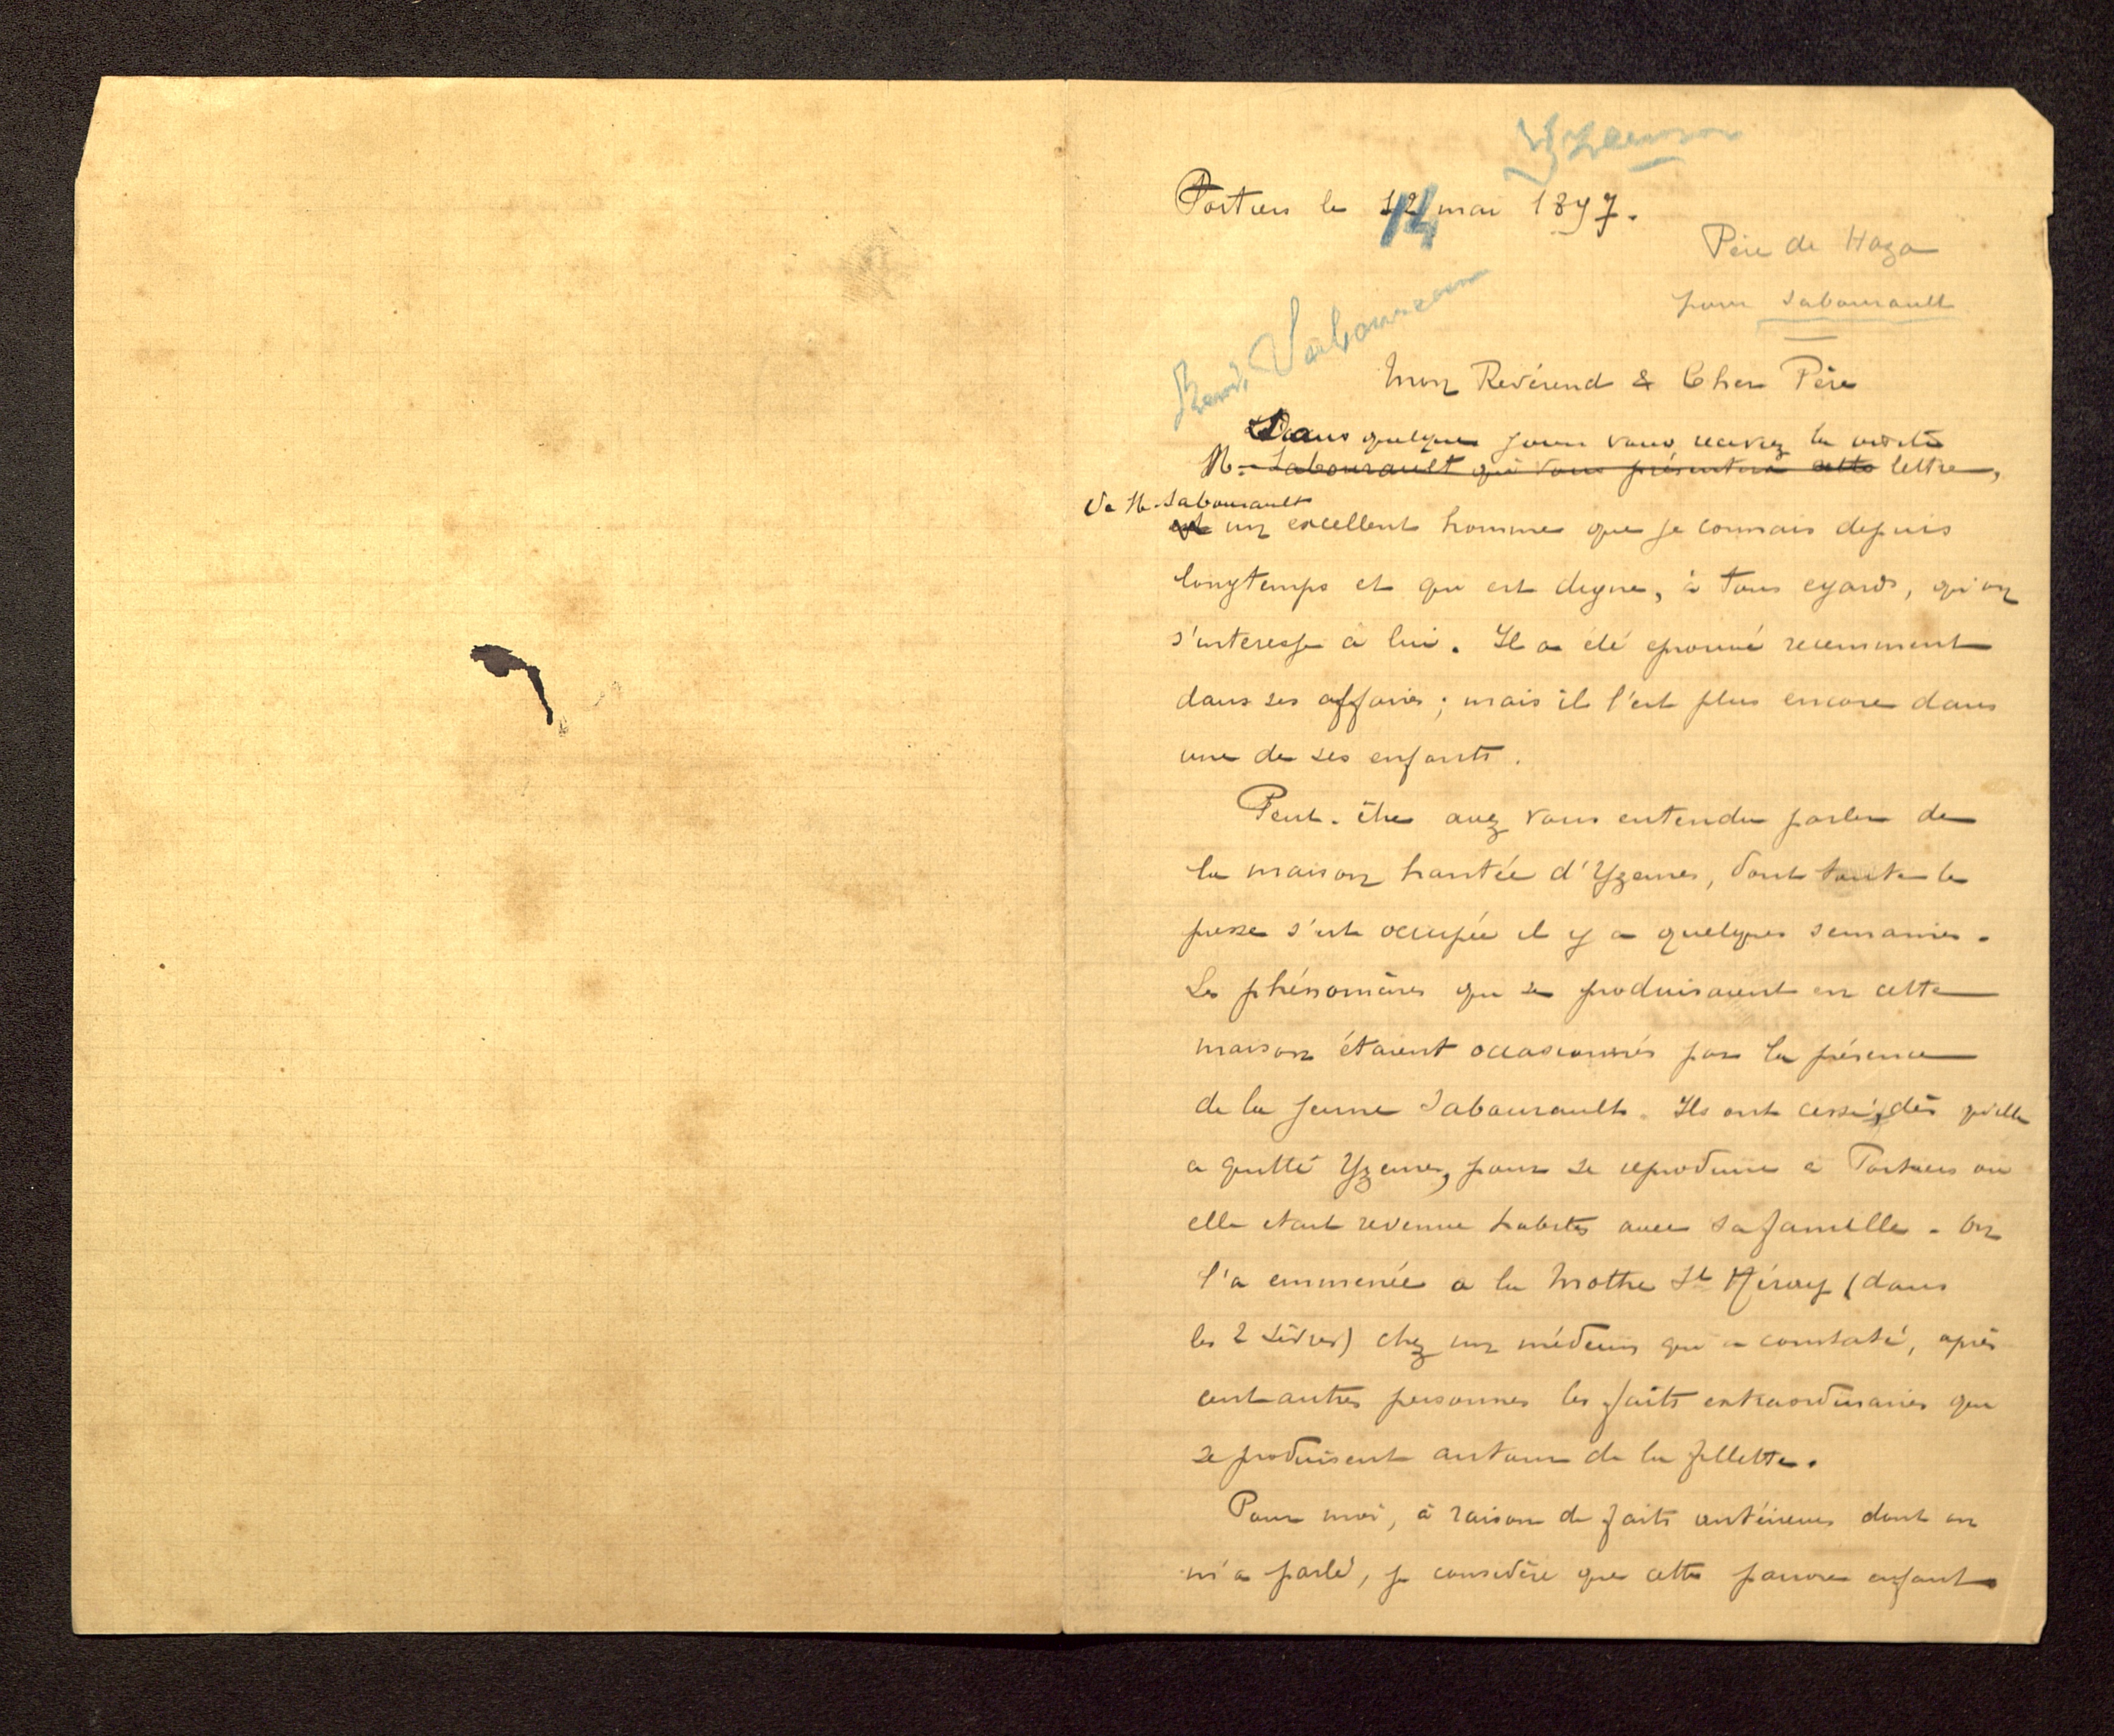 Yzeures
Poitiers le 12 mai 1897.
14
Père de Haza
pour Sabourault
Renée Sabourault
Mon Revérend & Cher Père
Dans quelques jours vous recevrez la visite
M. Sabourault qui vous présentera cette lettre,
de M. Sabourault
est un excellent homme que je connais depuis
longtemps et qui est digne, à tous egards, qu'on
s'interesse a lui. Il a été eprouvé recemment
dans ses affaires ; mais il l'est plus encore dans
une de ses enfants.
Peut-être avez vous entendu parler de
la maison hantée d'Yzeures, dont toute la
presse s'est occupée il y a quelques semaines.
Les phénomènes qui se produisaient en cette
maison étaient occasionnés par la présence
de la jeune Sabourault. Ils ont cessé, dès qu'elle
a quitté Yzeures, pour se reproduire à Poitiers ou
elle etait revenue habiter avec sa famille. On
l'a emmenée a la Mothe St Héray (dans
les 2 Sèvres) chez un médecin qui a constaté, après
cent autres personnes les faits extraordinaires qui
se produisent autour de la fillette.
Pour moi, à raison de faits antérieurs dont on
m'a parlé, je considère que cette pauvre enfant